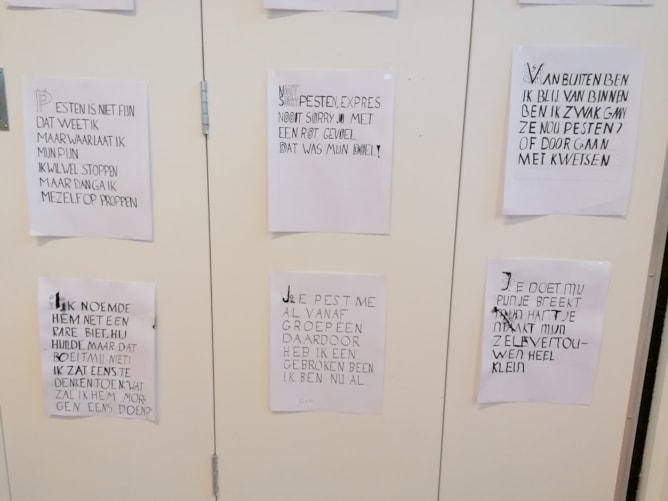 PESTEN IS NIET FIJN
DAT WEET IK
MAAR WAAR LAAT IK
MIJN PIJN
IK WIL WEL STOPPEN
MAAR DAN GA IK
MEZELF OP PROPPEN
PESTEN, EXPRES
NOOIT SORRY JIJ MET
EEN ROT GEVOEL
DAT WAS MIJN DOEL!
VAN BUITEN BEN
IK BLIJ VAN BINNEN
BEN IK ZWAK GAAN
ZE NOU PESTEN?
OF DOOR GAAN
MET KWETSEN
IK NOEMDE
HEM NET EEN
RARE BIET, HIJ
HUILDE MAAR DAT
BOEIT MIJ NIET!
IK ZAT EENS TE
DENKEN TOEN: WAT
ZAL IK HEM MOR-
GEN EENS DOEN?
JE PEST ME
AL VANAF
GROEP EÉN
DAARDOOR
HEB IK EEN
GEBROKEN BEEN
IK BEN NU AL
JE DOET MIJ
PIJN JE BREEKT
MIJN HARTJE
MAAKT MIJN
ZELFVERTOU-
WEN HEEL
KLEIN